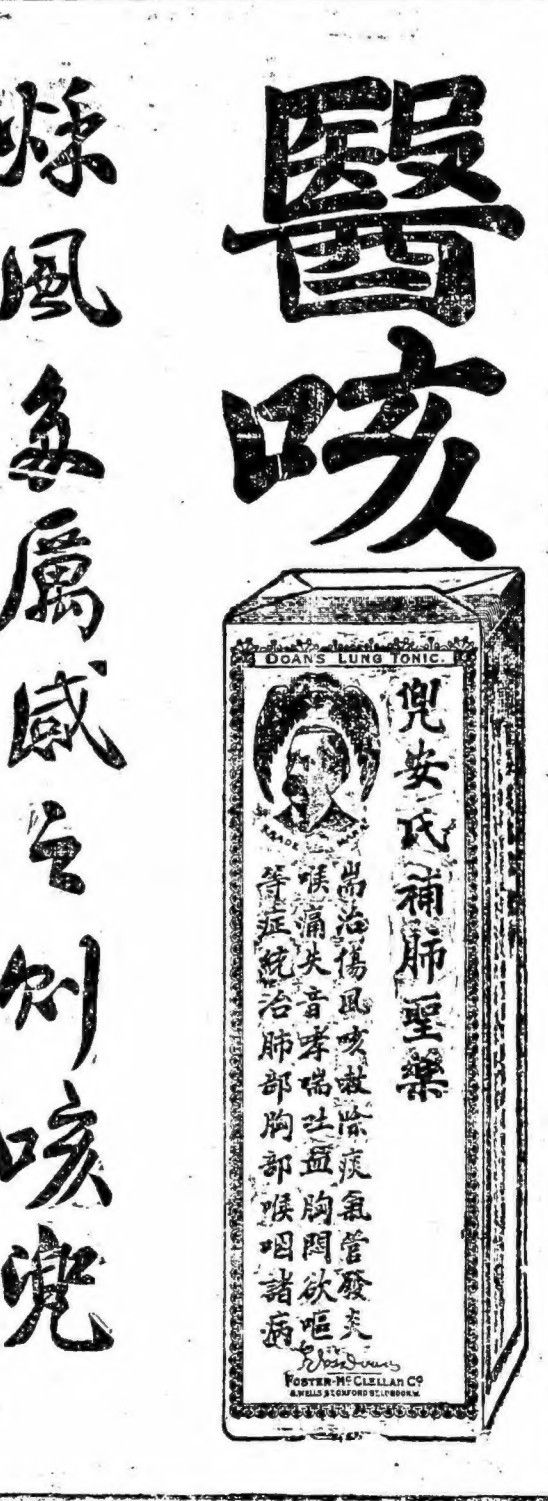 醫咳
DOAN'S LUNG TONIC.
兜安氏補肺聖藥
耑治傷風咳嗽除痰氣管發炎
喉痛失音哮喘吐血胸悶欲嘔
等症統治肺部胸部喉咽諸病
TRADE MARK
FOSTER-McCLELLAN Co
8, WELLS ST. OXFORD ST. LONDON. W.
秋風多厲感之則咳兜